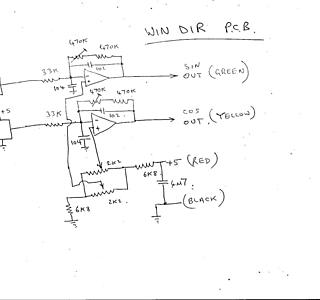 WIN DIR P.C.B.
470K 470K
102
33K
104
SIN
OUT (GREEN)
+5
470K 470K
102
33K
104
COS
OUT (YELLOW)
2K2
+5 (RED)
6K8
4M7
2K2
6K8
(BLACK)